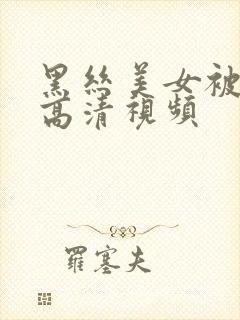 黑絲美女被
高清視頻
羅塞夫